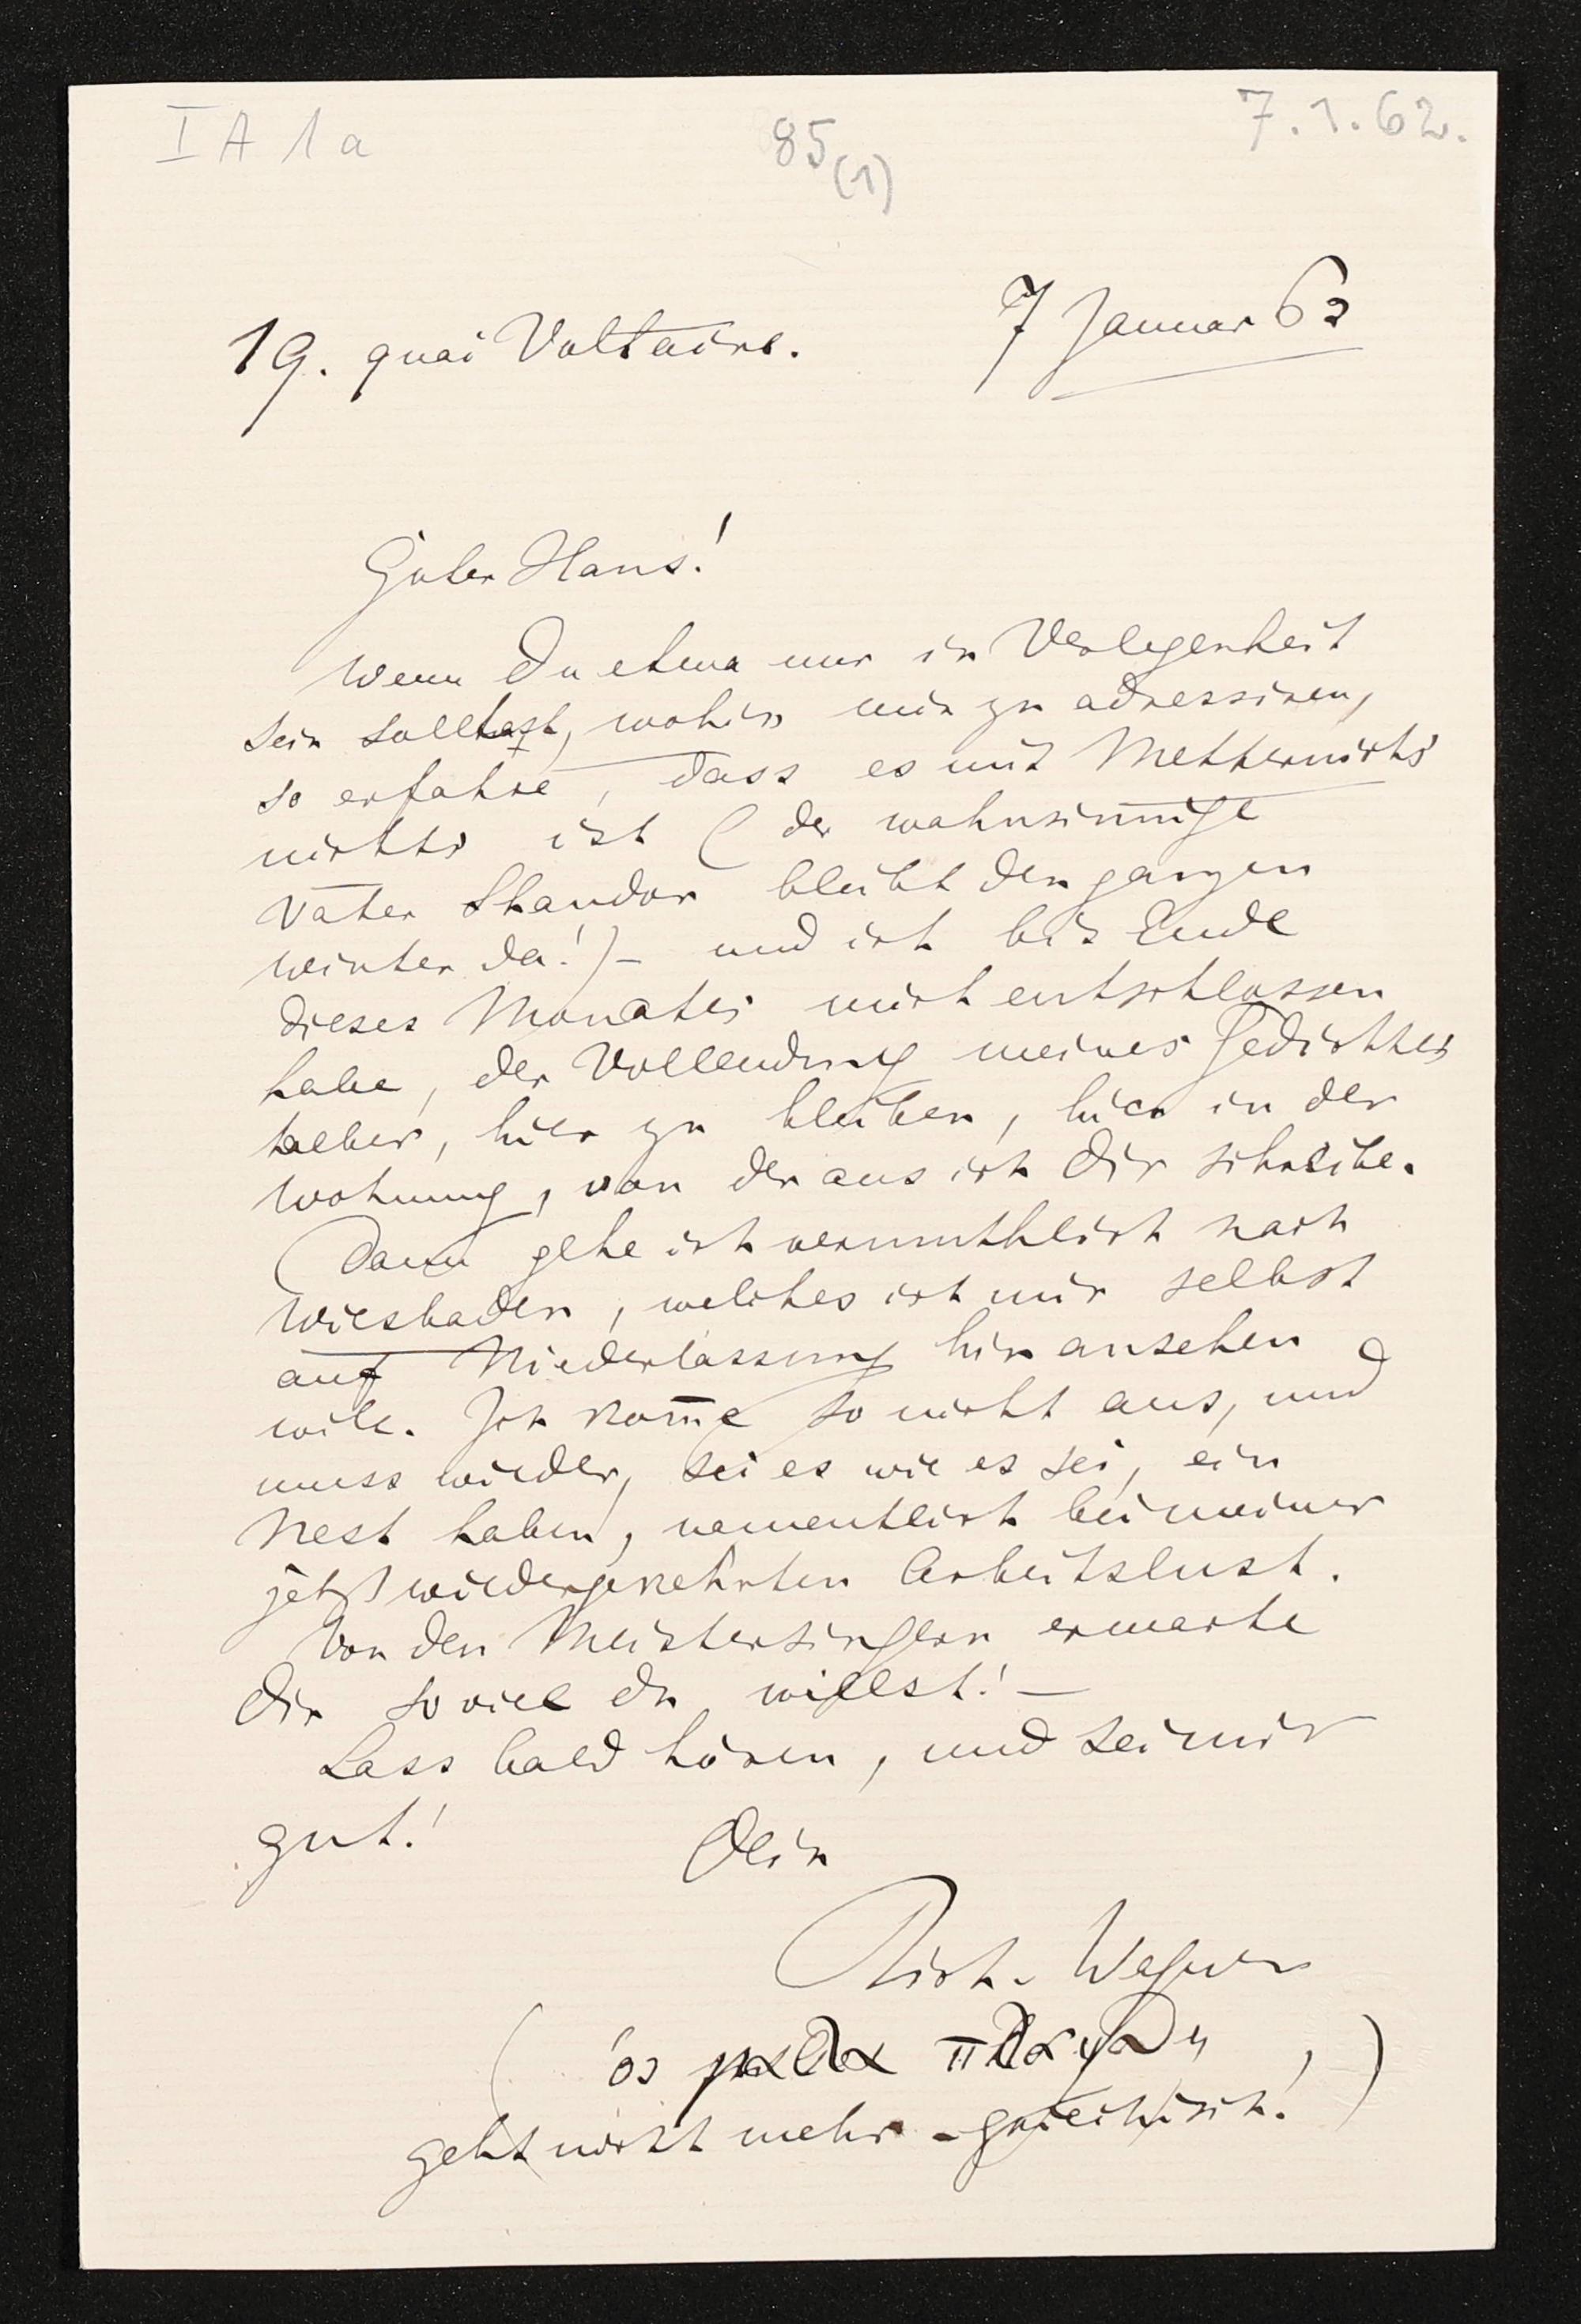 I A 1 a
85 (1)
7.1.62.
19. quai Voltaire.
7 Januar 62
Guter Hans!
Wenn Du etwa nur in Verlegenheit
sein solltest, wohin mir zu adressiren,
so erfahre, dass es mit Metternichs
nichts ist (der wahnsinnige
Vater Shandor bleibt den ganzen
Winter da!) – und ich bis Ende
dieses Monates mich entschlossen
habe, der Vollendung meines Gedichtes
halber, hier zu bleiben, hier in der
Wohnung, von der aus ich Dir schreibe.
Dann gehe ich vermuthlich nach
Wiesbaden, welches ich mir selbst
auf Niederlassung hin ansehen
will. Ich kom̄e so nicht aus, und
muss wieder, sei es wie es sei, ein
Nest haben, namentlich bei meiner
jetzt wiedergekehrten Arbeitslust.
Von den Meistersingern erwarte
Dir so viel du willst! –
Lass bald hören, und sei mir
gut!
Dein
Rich. Wagner
(ὃς μαλα
geht nicht mehr - griechisch!)